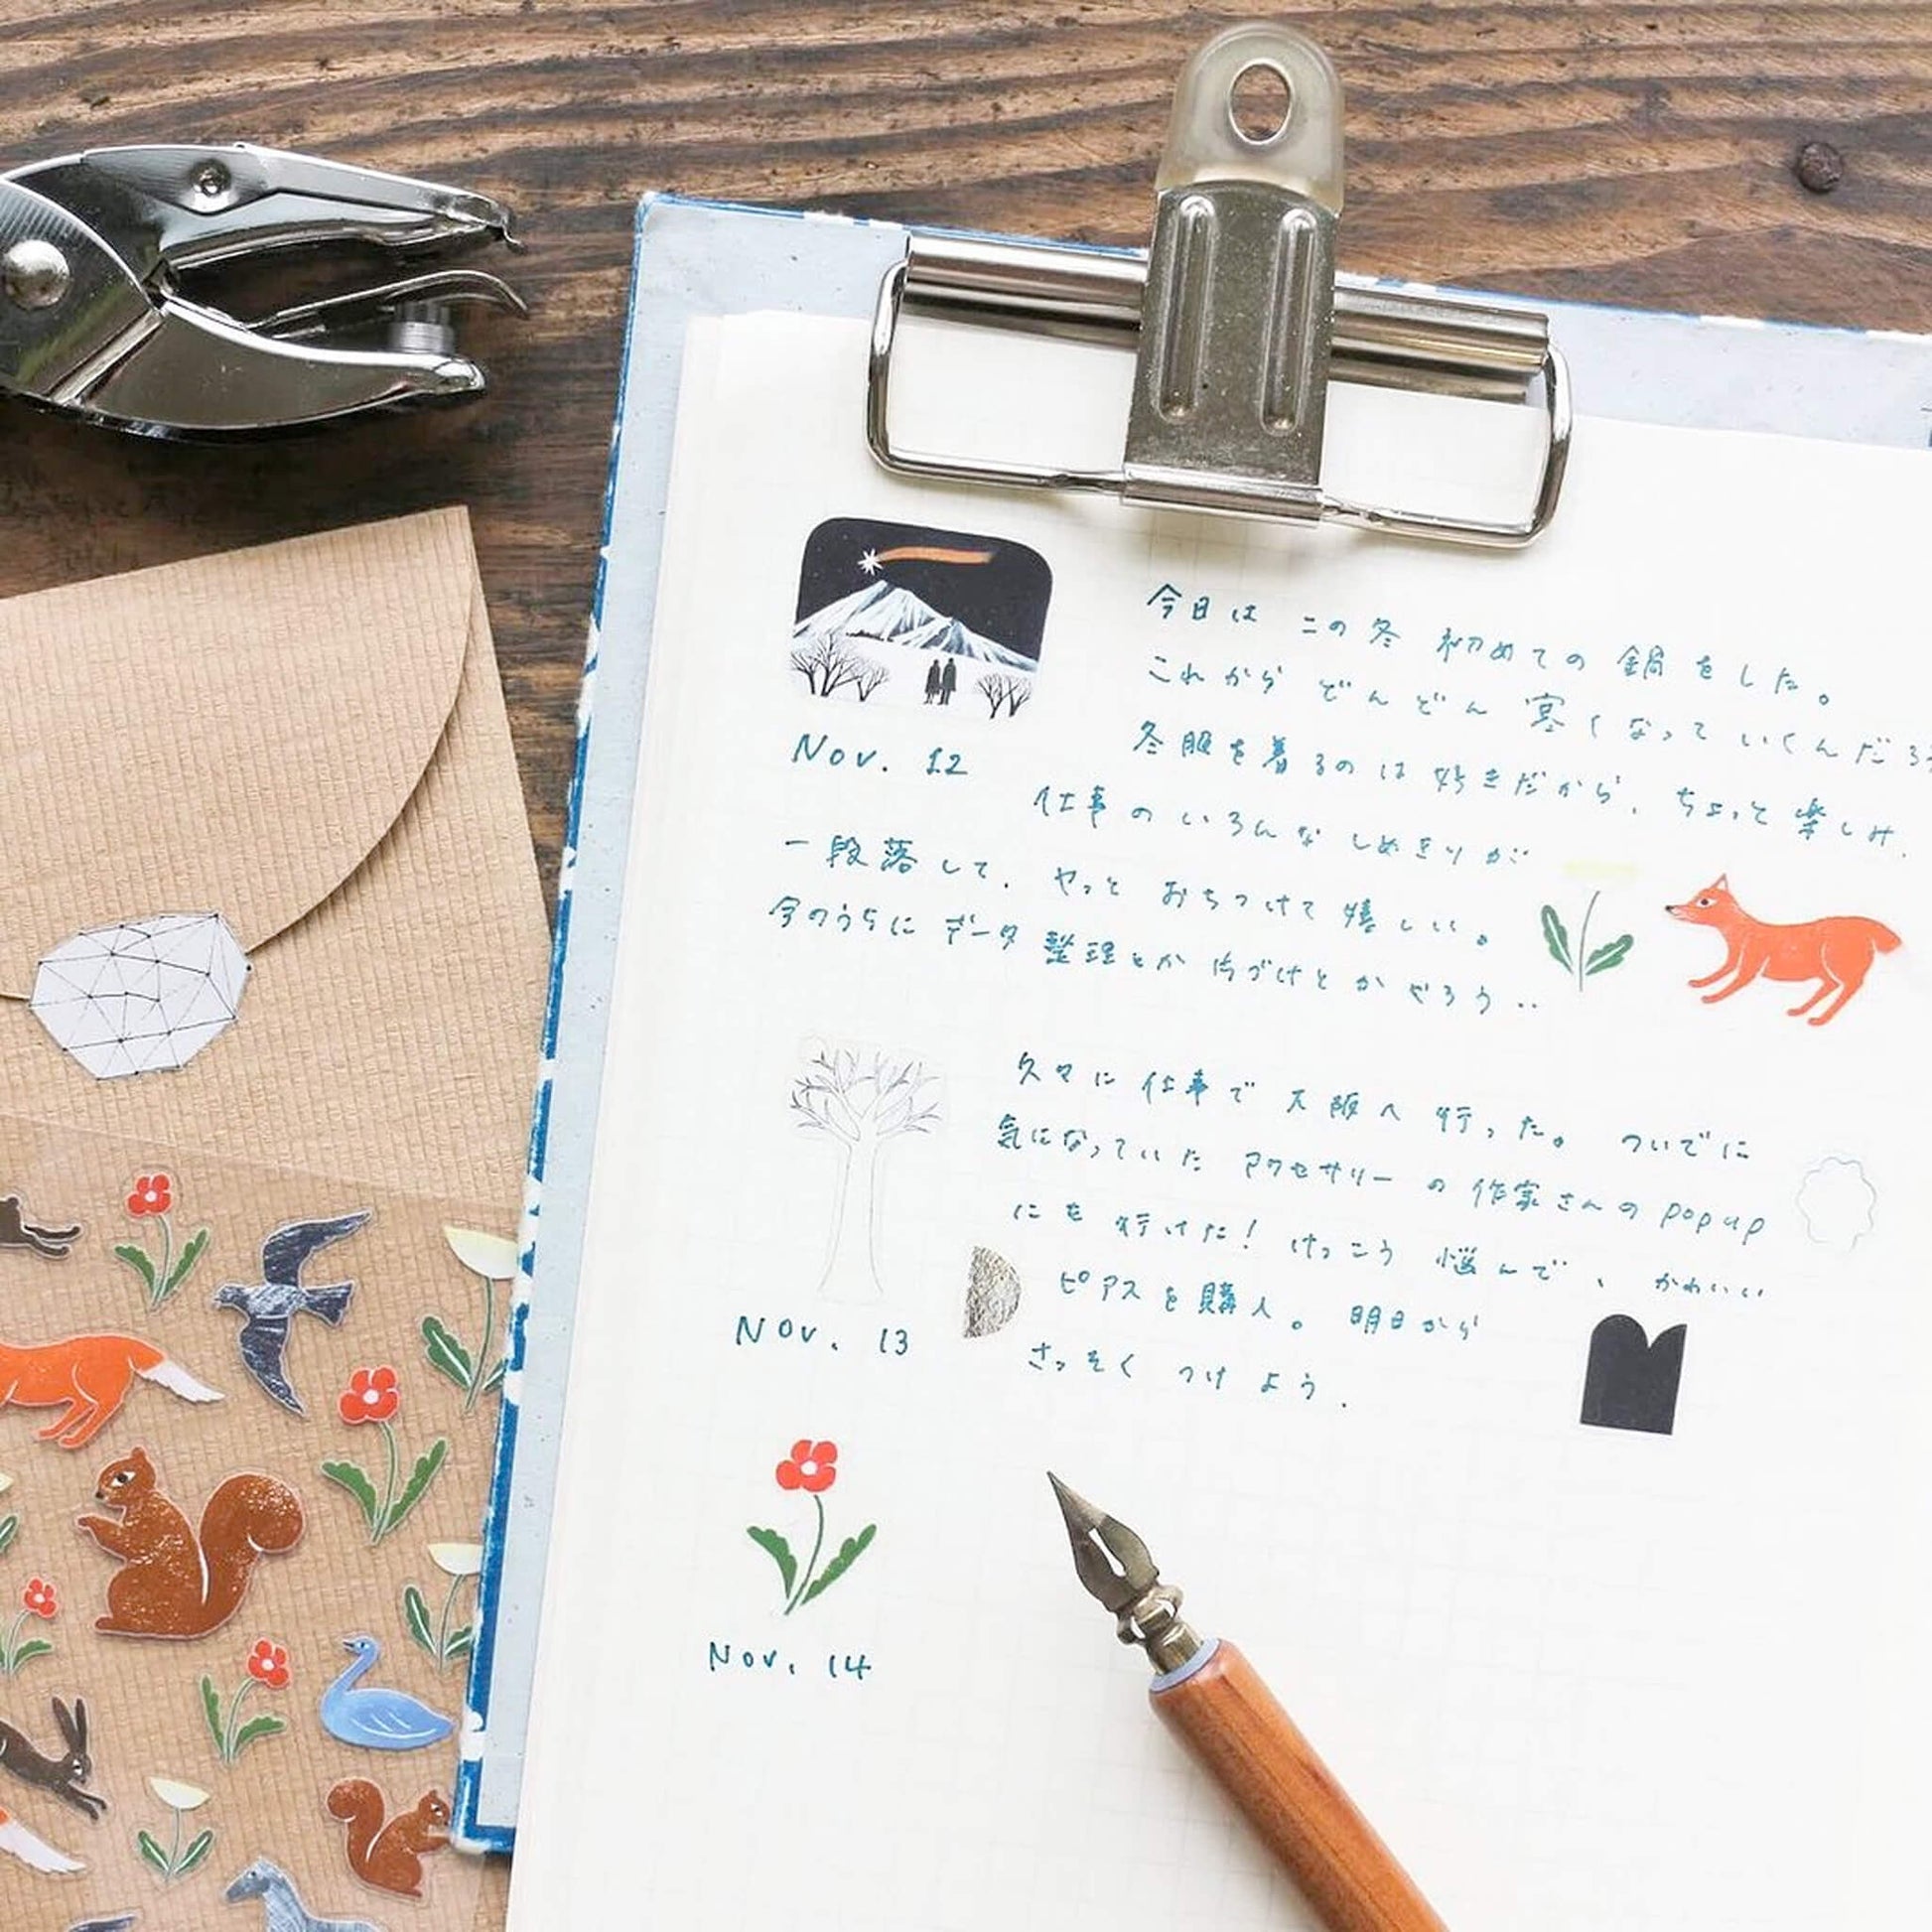 今日は この冬 初めての 鍋をした。
これから どんどん 寒くなって いくんだろう
冬服を着るのは好きだから、ちょっと楽しみ.
Nov. 12
仕事のいろんなしめきりが
一段落して. やっと おちつけて 嬉しい。
今のうちに データ整理とか片づけとかやろう..
久々に仕事で 大阪へ 行った。 ついでに
気になっていた アクセサリーの 作家さんの popup
にも 行けた! けっこう 悩んで、 かわいい
ピアスを購入。 明日から
さっそく つけよう.
Nov. 13
Nov. 14